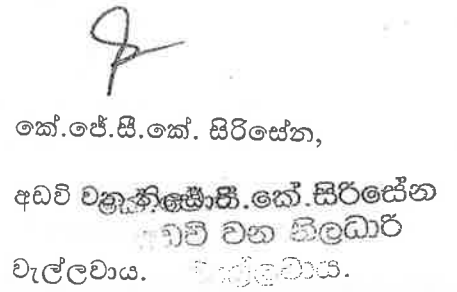 කේ.ජේ.සී.කේ. සිරිසේන,
අඩවි වන
සී.කේ.සිරිසේන
අඩවි වන නිලධාරි
වැල්ලවාය.
වැල්ලවාය.